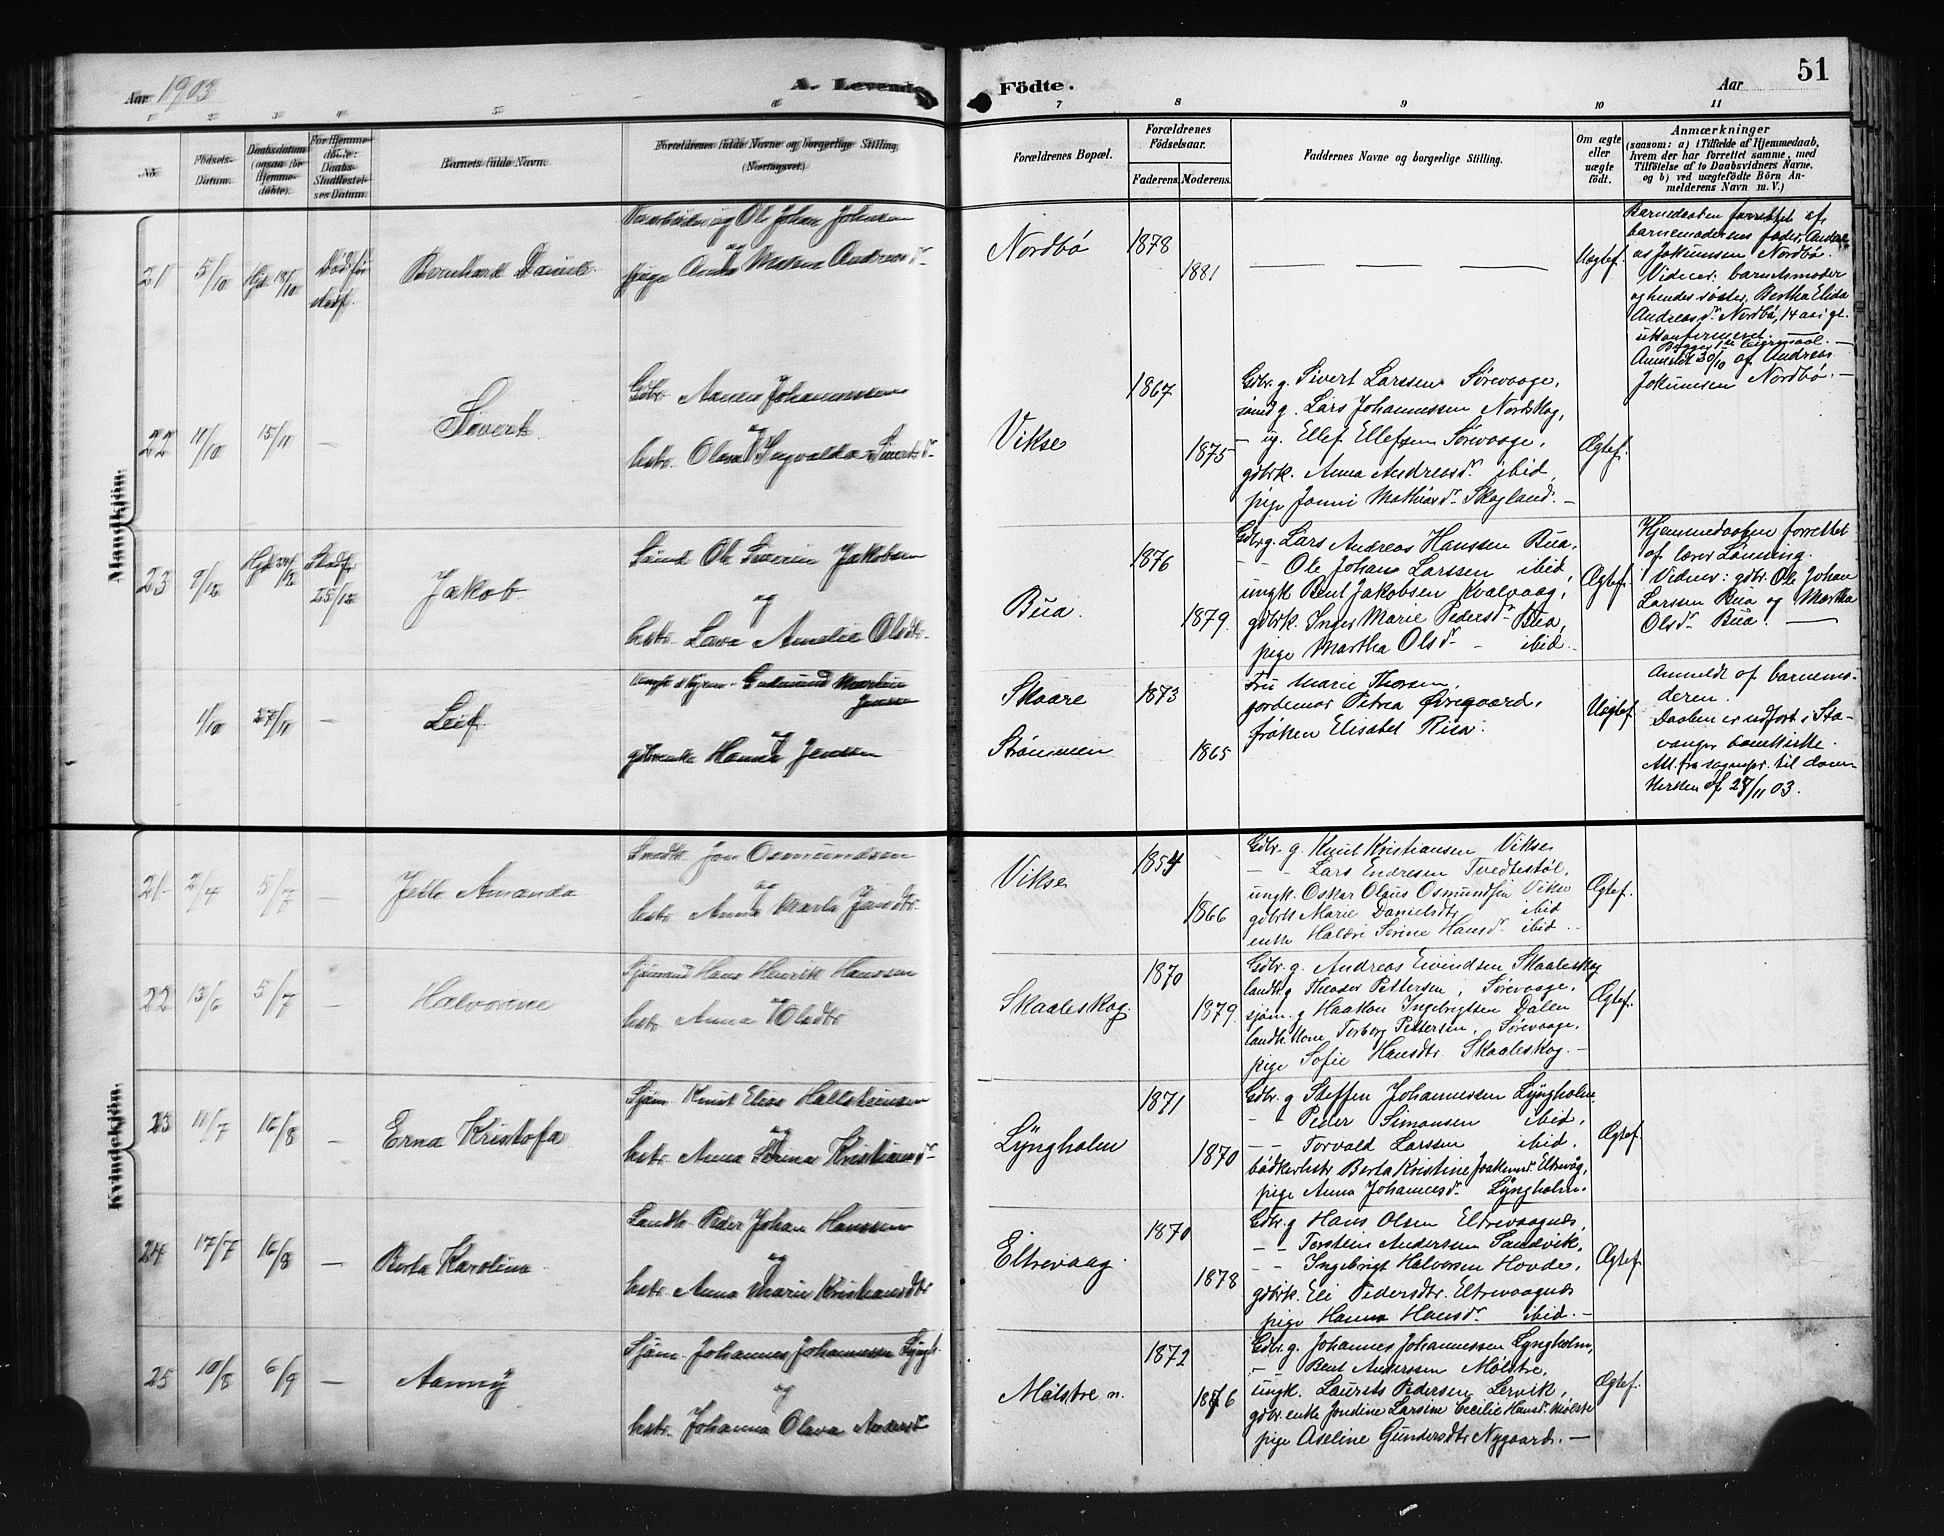 Aar 1903
A. Levende Födte.
Aar
51
1 2 3 4 5 6 7 8 9 10 11
No.
Födsels-
Datum.
Daabsdatum
(ogsaa for
Hjemme-
döbte).
For Hjemme-
döbte:
Daabs-
Stadfæstel-
ses Datum.
Barnets fulde Navn.
Forældrenes fulde Navne og borgerlige Stilling
(Næringsvei.)
Forældrenes Bopæl.
Forældrenes
Födselsaar.
Faderens. Moderens.
Faddernes Navne og borgerlige Stilling.
Om ægte
eller
uægte
födt.
Anmærkninger
(saasom: a) i Tilfælde af Hjemmedaab,
hvem der har forrettet samme, med
Tilföielse af to Daabsvidners Navne,
og b) ved uægtefödte Börn An-
melderens Navn m. V.)
Mandkjön.
21 5/10 Hjd. 18/10
Bernhard Daniel.
ug Ole Johan Johnsen
og
pige Anna Malene Andreasd.
Nordbö
1878
1881
Uægtef.
Barnedaaben forrettet af
barnemoderens fader, Andre-
as Jokumsen Nordbö.
Vidner: barnetsmoder
og hendes söster, Bertha Elida
Andreasdr Nordbö, 14 aar gl.
ukonfirmeret.
Anmeldt 30/10 af Andreas
Jokumsen Nordbö. —
22 11/10 15/11 —
Sivert.
Gdbr. Johannessen
og
hstr. Olava Ingvalda Sivertsdr
Vikse
1867
1875
Gdbr. g. Sivert Larssen Sörevaage,
sömd g. Lars Johannessen Nordskog,
— ug. Ellef Ellefsen Sörevaage,
gdbrk. Anna Andreasdr ibid,
pige Jonni Mathiasdr Skogland. —
Ægtef.
23 9/12 Stadf. 25/12
Jakob.
Sömd Ole Severin Jakobsen
og
hstr. Lava Amelie Olsdtr.
Bua.
1876
1879.
Gdbr g. Lars Andreas Hanssen Bua,
- - Ole Johan Larssen ibid,
ungk. Bent Jakobsen Kvalvaag,
gdbrk. Inger Marie Pedersdr Bua,
pige Martha Olsdr — ibid.
Ægtef.
Hjemmedaaben forrettet
af lærer Lönning.
Vidner: gdbr. Ole Johan
Larssen Bua og Martha
Olsdr Bua. —
1/10 27/11 —
Leif.
Gudmund Martin
Jensen
og
Hanna Jensen
Skaare
Strömmen
1873
1865
Fru Marie Thorsen,
jordemor Petrea Övregaard,
fröken Elisabet Riis.
Uægtef.
Anmeldt af barnemo-
deren.
Daaben er udfört i Sta-
vanger domkirke.
Att. fra sognepr. til dom-
kirken af 27/11 03.
Kvindekjön.
21 2/4 5/7
Jette Amanda
Smedk. Jon Osmundsen
og
hstr. Anna Marta Jansdtr.
Vikse
1854
1866
Gdbr. g. Knut Kristiansen Vikse,
— — Lars Endresen Tvedtestöl,
ungk. Oskar Olaus Osmundsen Vikse
gdbrk Marie Danielsdtr ibid
enke Haldri Serine Hansdr ibid. —
Ægtef.
22 13/6 5/7 —
Halvorine
Sjömand Hans Henrik Hanssen
og
hstr. Anna Olsdtr
Skaaleskog.
1870
1879.
Gdbr. g. Andreas Eivindsen Skaaleskog
landh. g Theodor Pettersen, Sörevaage,
sjöm. g Haakon Ingebrigtsen Dalen
landh. kone Torborg Pettersen, Sörevaage,
pige Sofie Hansdtr. Skaaleskog. —
Ægtef.
23 11/7 16/8 —
Erna Kristofa
Sjöm. Knut Elias Hallsteinsen
og
hstr. Anna Serina Kristiansdr
Lyngholm
1871
1870
Gdbr. g Steffen Johannessen Lyngholm,
- - Peder Simonsen ibid,
- - Torvald Larssen ibid.
bödkerhstr Berta Kristine Joakimsdr Eltrevåg,
pige Anna Johannesdr Lyngholm.
Ægtef.
24 17/7 16/8 —
Berta Karolina
Landh. Peder Johan Hanssen
og
hstr. Anna Marie Kristiansdtr
Eltrevaag.
1870
1878
Gdbr. g Hans Olsen Eltrevaagnes,
- - Torstein Andersen Sandvik,
- - Ingebrigt Halvorsen Hovde,
gdbrk. Eli Pedersdtr. Eltrevaagnes
pige Hanna Hansdr ibid. —
Ægtef.
25 10/8 6/9 —
Aanny
Sjöm. Johannes Johannessen Lyngh.
og
hstr. Johanna Olava Andersdr
Mölstre n.
1872
1876
Gdbr. g. Johannes Johannessen Lyngholm,
— Bent Anderssen Mölstre,
ungk. Laurits Pedersen Lervik,
gdbr.enke Jondine Larsine Cecilie Hansdr Mölstre
pige Aseline Gundersdtr Nygaard. —
Ægtef.